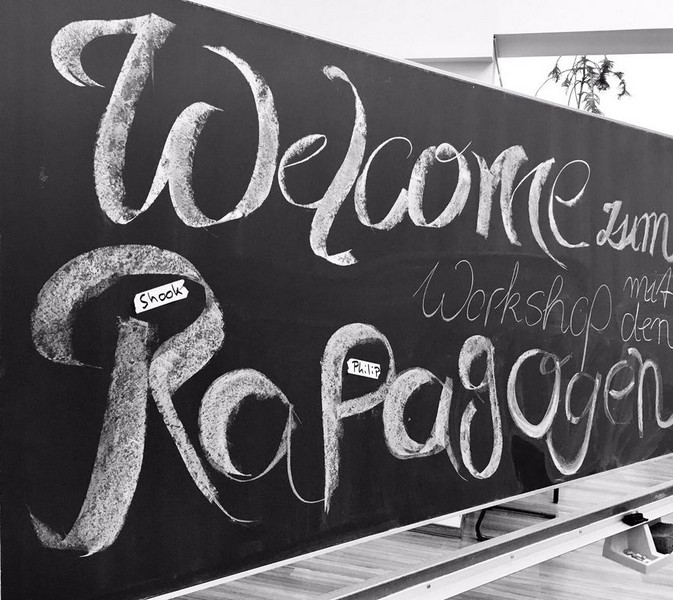 Welcome zum
Workshop mit den
Rapagogen
Shook
Philip